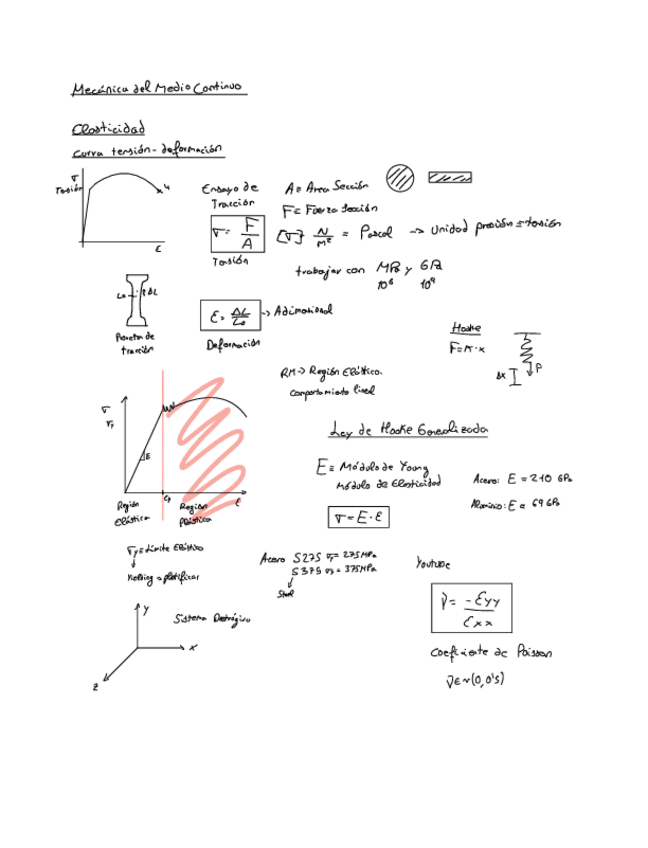 Mecánica del Medio Continuo
Elasticidad
Curva tensión - deformación
σ
Tensión
u
ε
Ensayo de
Tracción
σ = F / A
Tensión
A ≡ Area Sección
F ≡ Fuerza Sección
[σ] N/m² = Pascal → Unidad presión = tensión
trabajar con MPa y GPa
10⁶ 10⁹
L₀ ΔL
Probeta de
tracción
ε = ΔL / L₀ → Adimensional
Deformación
Hooke
F = K · x
Δx
P
RM → Región Elástica.
Comportamiento lineal
σ
σy
E
εy
ε
Región
Elástica
Región
Plástica
Ley de Hooke Generalizada
E ≡ Módulo de Young
Módulo de Elasticidad
σ = E · ε
Acero: E = 210 GPa
Aluminio: E = 69 GPa
σy ≡ Límite Elástico
Yielding = plastificar
Acero S275 σy = 275 MPa
S375 σy = 375 MPa
Steel
Youtube
y
x
z
ν = -εyy / εxx
Coeficiente de Poisson
ν ∈ ~(0, 0'5)